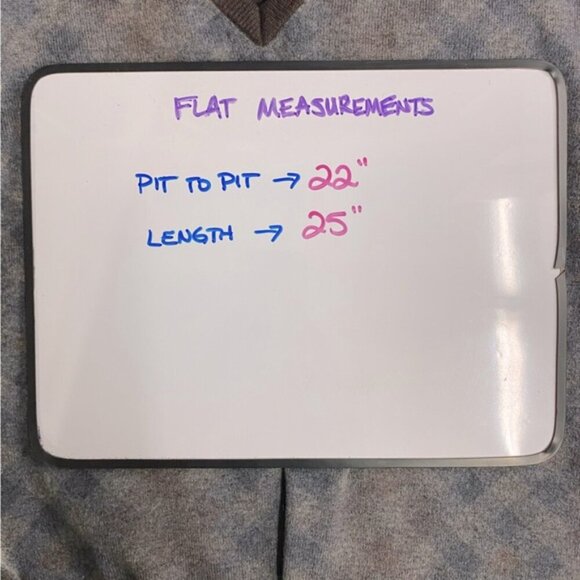 FLAT MEASUREMENTS
PIT TO PIT → 22"
LENGTH → 25"